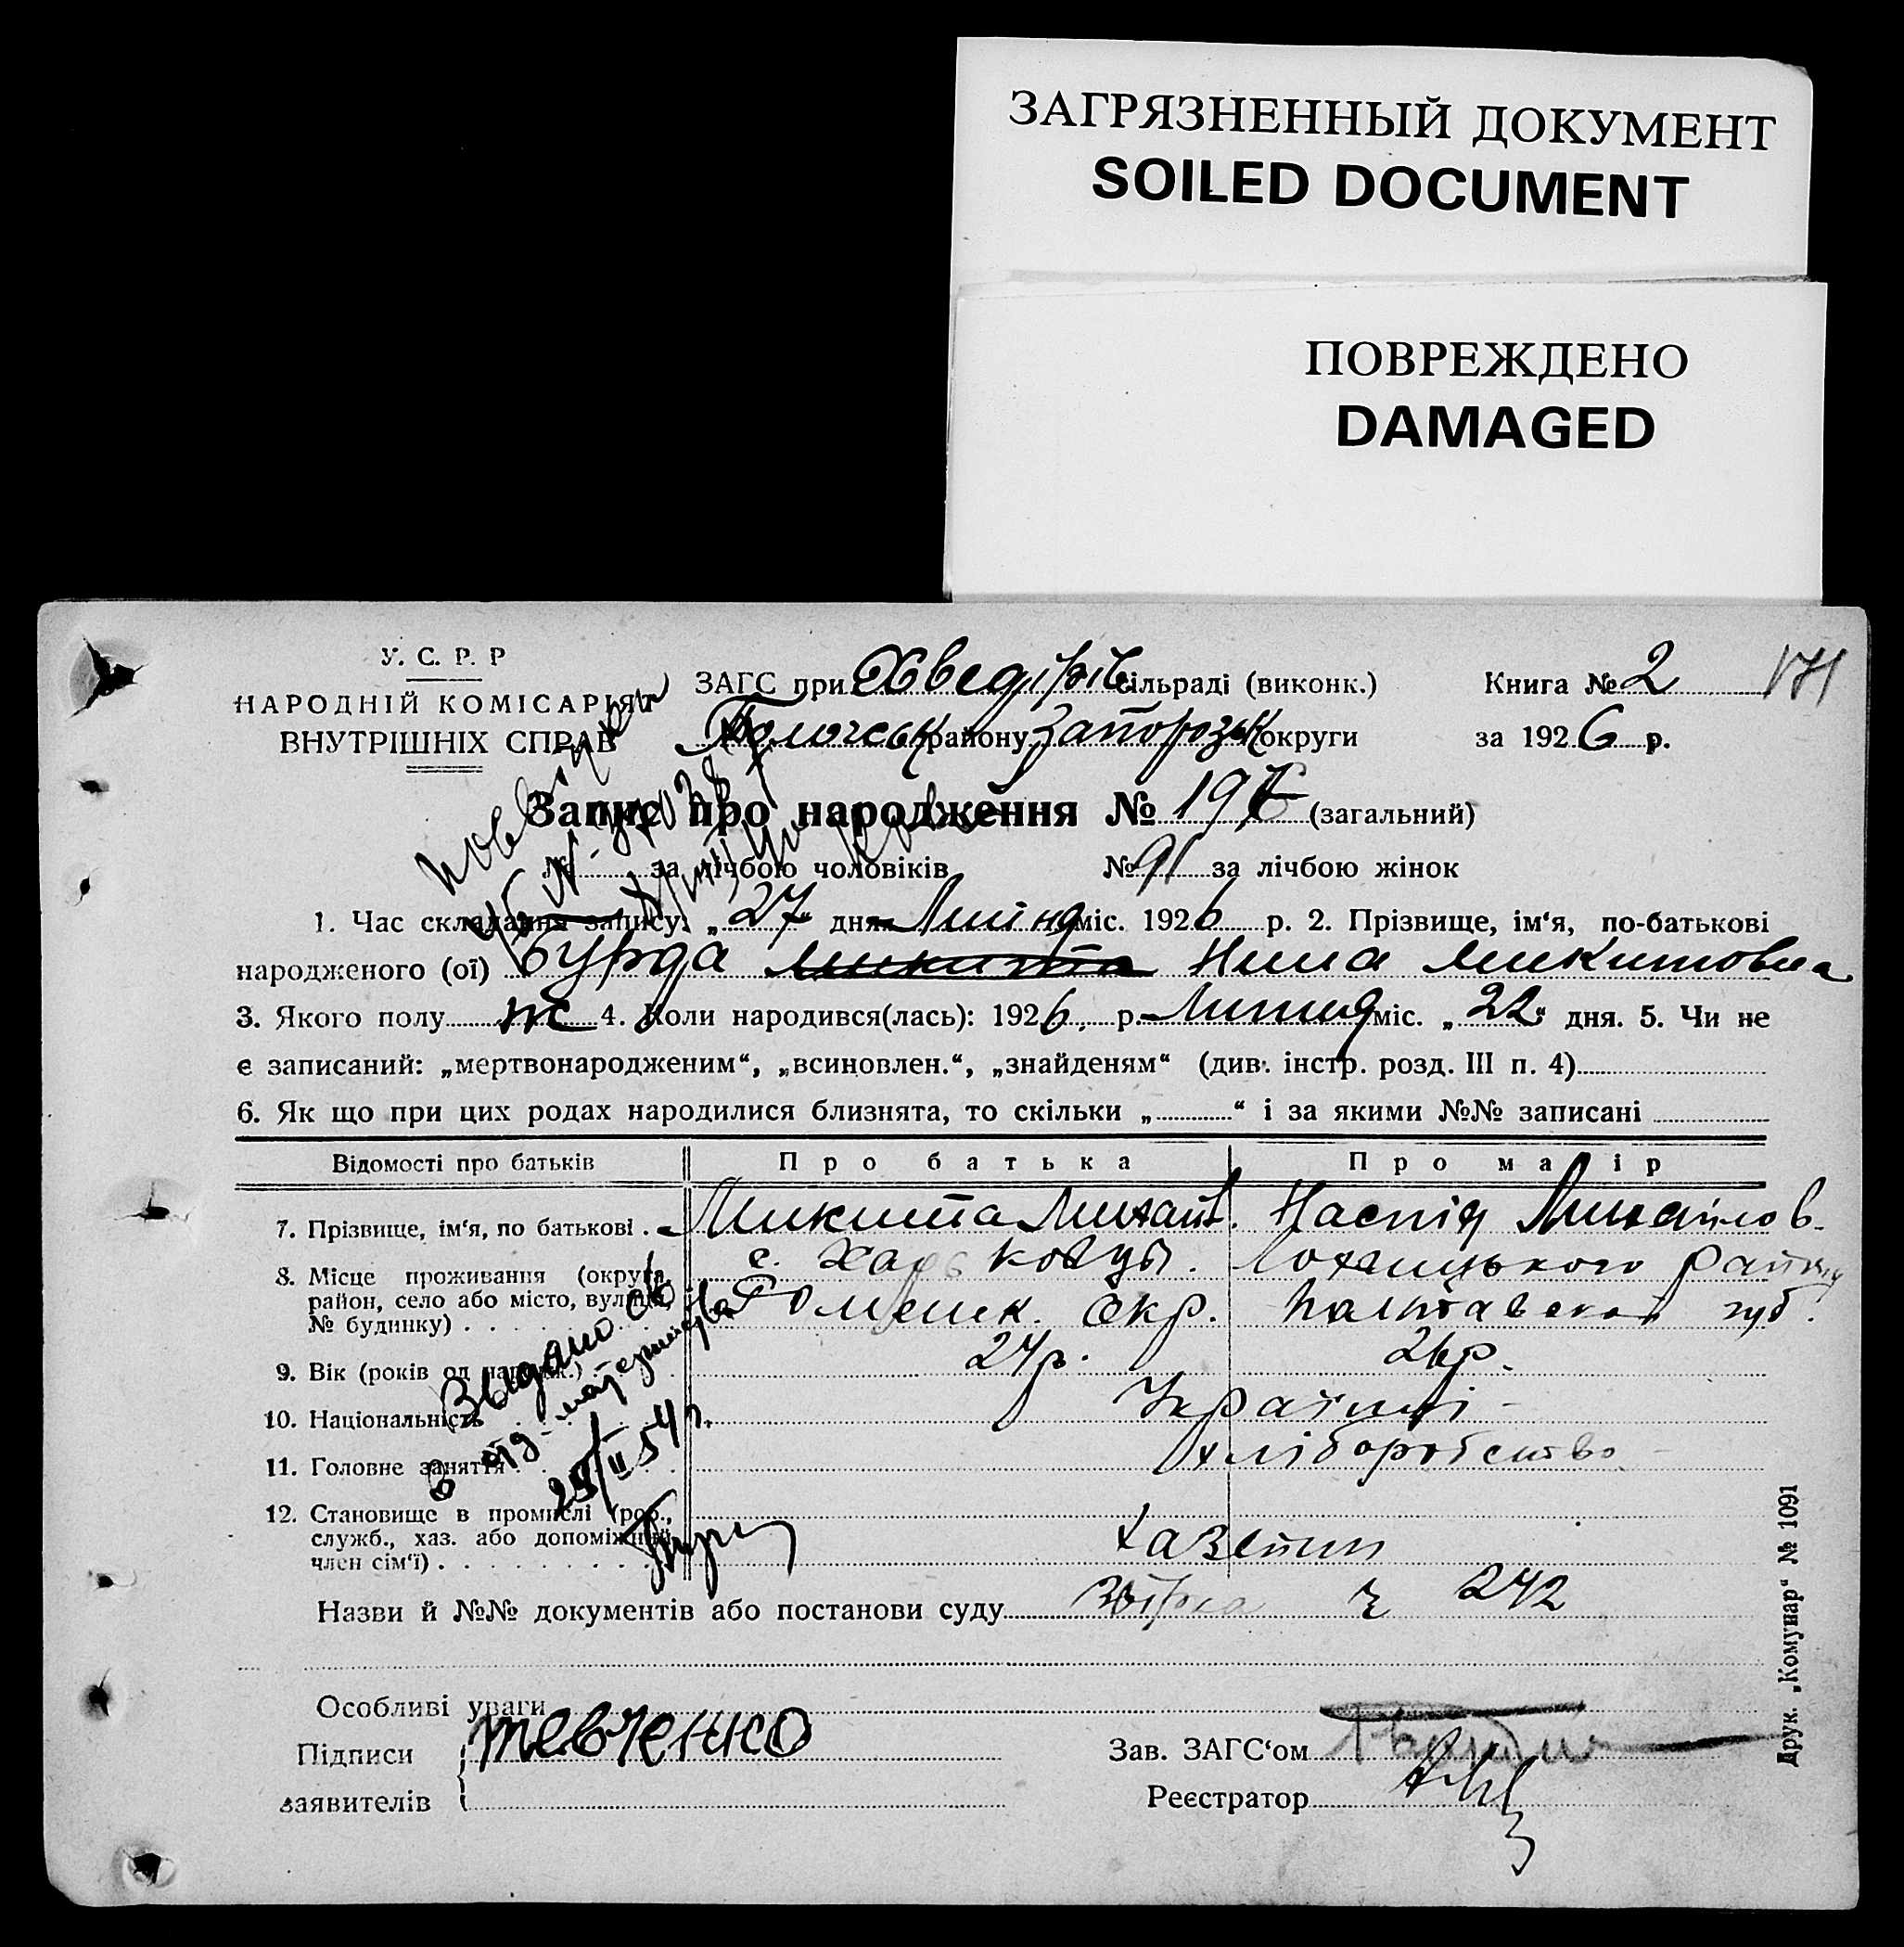 ЗАГРЯЗНЕННЫЙ ДОКУМЕНТ
SOILED DOCUMENT
ПОВРЕЖДЕНО
DAMAGED
У. С. Р. Р
НАРОДНІЙ КОМІСАРІЯТ
ВНУТРІШНІХ СПРАВ
ЗАГС при Хведірів сільраді (виконк.)
району Запорозьк округи
Книга № 2
171
за 1926 р.
Запис про народження № 197 (загальний)
№ за лічбою чоловіків № 91 за лічбою жінок
1. Час складання запису: „27“ дня міс. 1926 р. 2. Прізвище, ім‘я, по-батькові
народженого (ої) Бурда Микита Нина Микитовна
3. Якого полу ж 4. Коли народився(лась): 1926 р. Липня міс. „22“ дня. 5. Чи не
є записаний: „мертвонародженим“, „всиновлен.“, „знайденям“ (див. інстр. розд. III п. 4)
6. Як що при цих родах народилися близнята, то скільки „ “ і за якими №№ записані
Відомості про батьків Про батька Про матір
7. Прізвище, ім‘я, по батькові Микита Михайл. Настія Михайлов.
8. Місце проживання (округа, район, село або місто, вулиця, № будинку)
с. Харьковцы. Лохвицького району
Роменск. Окр. Полтавской губ.
9. Вік (років од народж.) 24р. 26р.
10. Національність Українці
11. Головне заняття хліборобство
12. Становище в промислі (роб., служб., хаз. або допоміжний член сім‘ї)
Назви й №№ документів або постанови суду 242
Особливі уваги
Підписи заявителів Шевченко
Зав. ЗАГС‘ом
Реєстратор
Друк. „Комунар“ № 1091
Выдано св.
в отд. материнства
54 г.